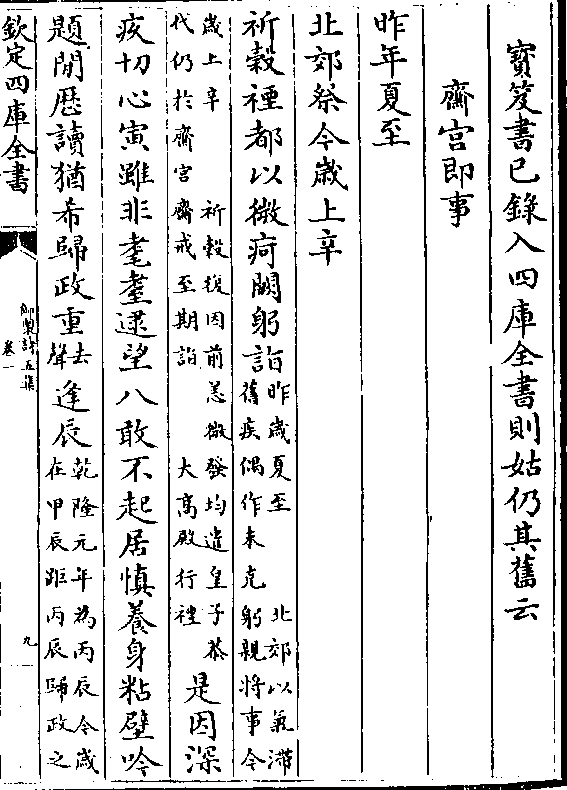 寶笈書已錄入四庫全書則姑仍其舊云
齋宮即事
昨年夏至
北郊祭今歲上辛
祈穀禋都以微痾闕躬詣
昨歲夏至 北郊以氣滯
舊疾偶作未克躬親將事今
歲上辛 祈穀復因前恙微發均遣皇子恭
代仍於齋宮齋戒至期詣 大高殿行禮
是因深
疢切心寅雖非耄耋逮望八敢不起居慎養身粘壁吟
題閒歴讀猶希歸政重
去
聲
逢辰
乾隆元年為丙辰今歲
在甲辰距丙辰歸政之
欽定四庫全書
御製詩五集
卷一
九